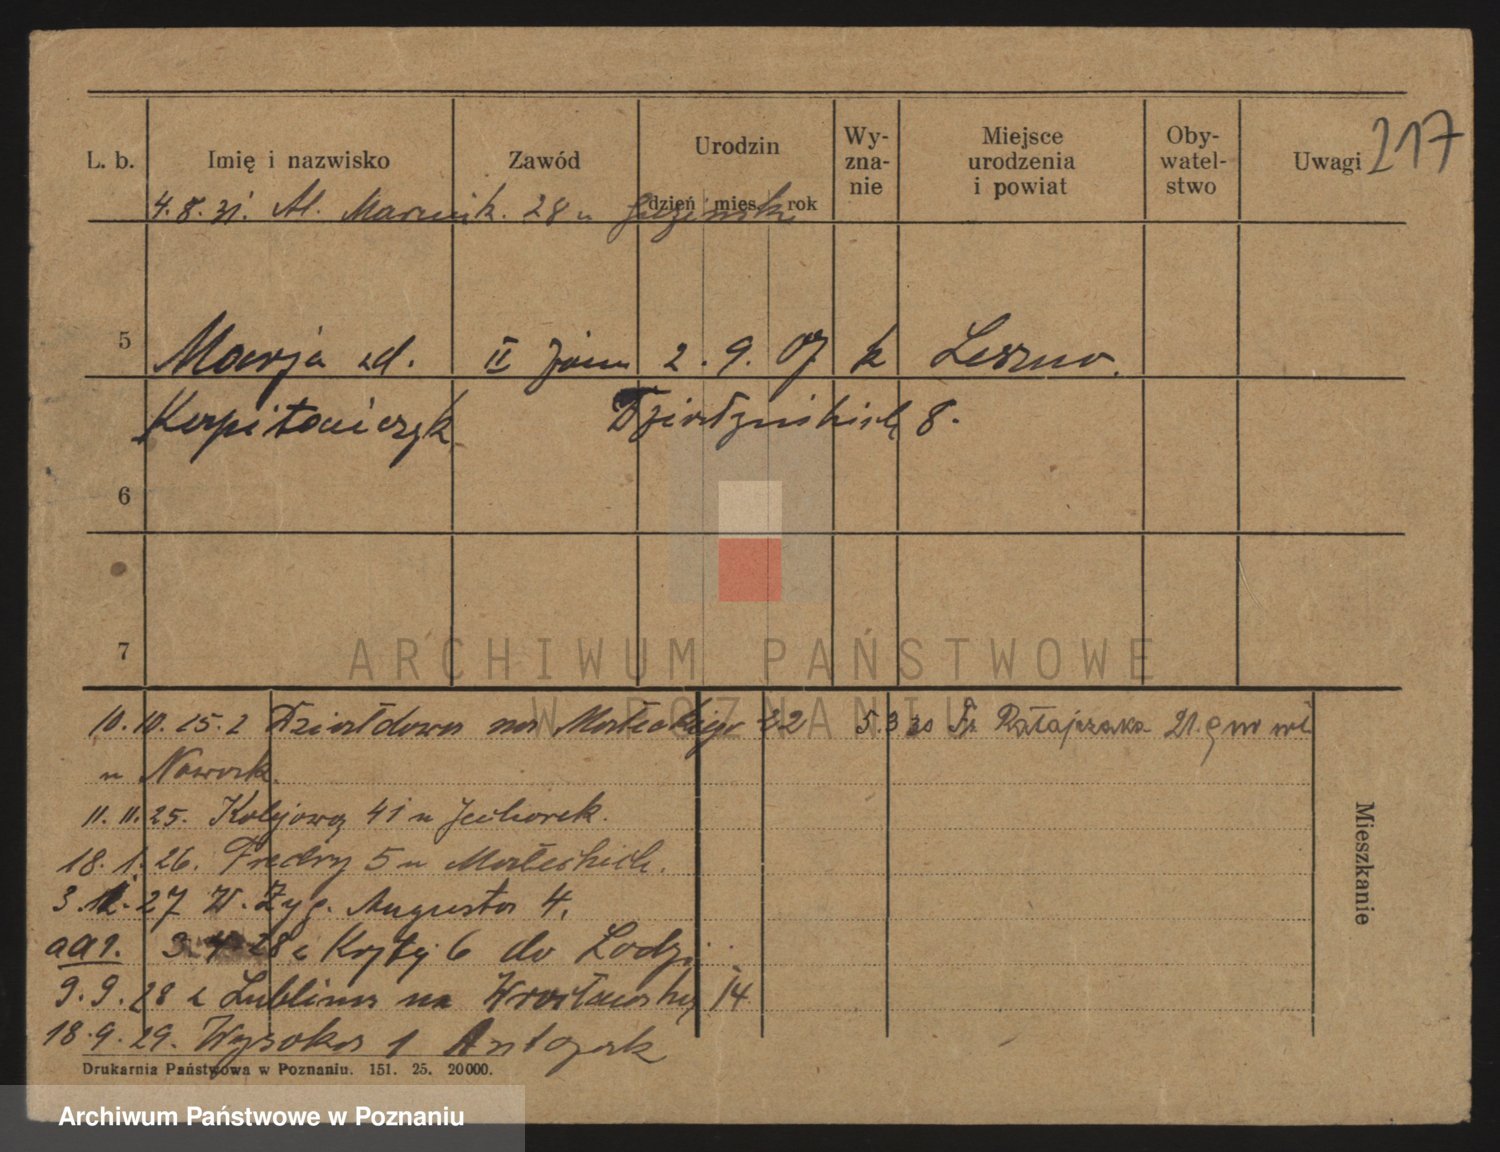 L. b. Imię i nazwisko Zawód Urodzin dzień mies. rok Wy-zna-nie Miejsce urodzenia i powiat Oby-watel-stwo Uwagi 217
4. 8. 31. Al. Marcink. 28 u
5 Marja zd. II 2. 9. 07 k Leszno.
8.
6
7
ARCHIWUM PAŃSTWOWE
W POZNANIU
10. 10. 25. z Działdowa na Małeckiego 22 5. 3 30 Fr. Ratajczaka 21.
u Nowack.
11. 11. 25. Kolejowa 41 u
18. 1. 26. Fredry 5 u Małeckich.
3. 27 W. Zyg. Augusta 4.
3 4 28 6 do Łodzi
9. 9. 28 z Lublina na Wrocławską 14
18. 9. 29. Wysoka 1
Mieszkanie
Drukarnia Państwowa w Poznaniu. 151. 25. 20000.
Archiwum Państwowe w Poznaniu